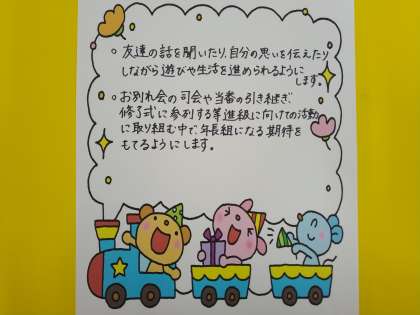 ○ 友達の話を聞いたり、自分の思いを伝えたり
しながら遊びや生活を進められるように
します。
○ お別れ会の司会や当番の引き継ぎ、
修了式に参列する等進級に向けての活動
に取り組む中で年長組になる期待を
もてるようにします。